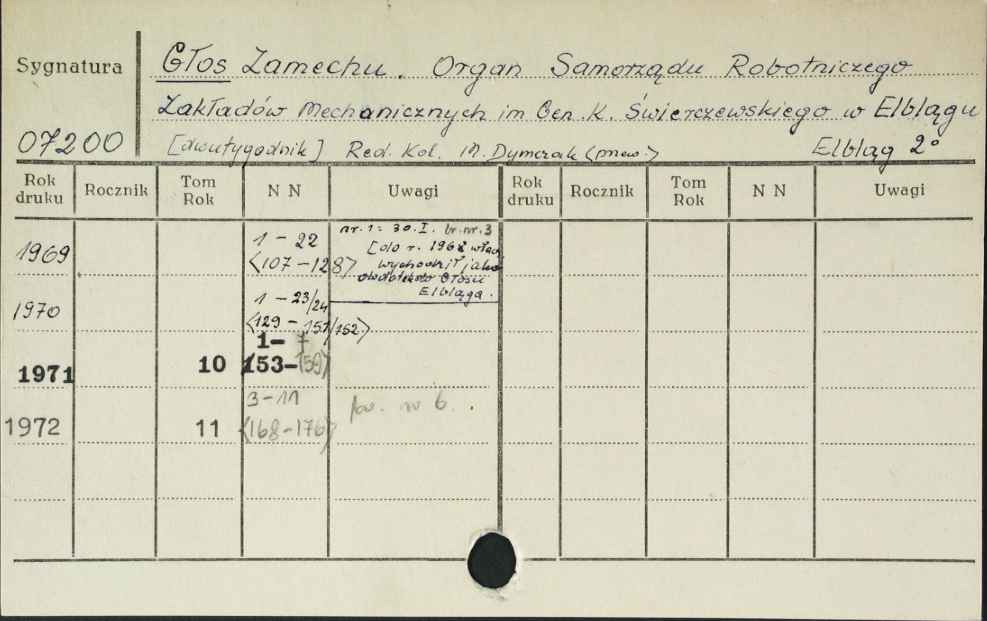 Sygnatura
07200
Głos Zamechu. Organ Samorządu Robotniczego
Zakładów Mechanicznych im Gen. K. Świerczewskiego w Elblągu
[dwutygodnik] Red. Kol. M. Dymczak (pnew.) Elbląg 2°
Rok druku Rocznik Tom Rok N N Uwagi Rok druku Rocznik Tom Rok N N Uwagi
1969 1-22 nr. 1: 30.I. br. nr. 3
<107-128> [do r. 1968 włącz
wychodził jako
Głosu
Elbląga.
1970 1-23/24
<129-151/152>
1971 10 1-7
<153-159>
1972 11 3-11 nr 6.
<168-176>